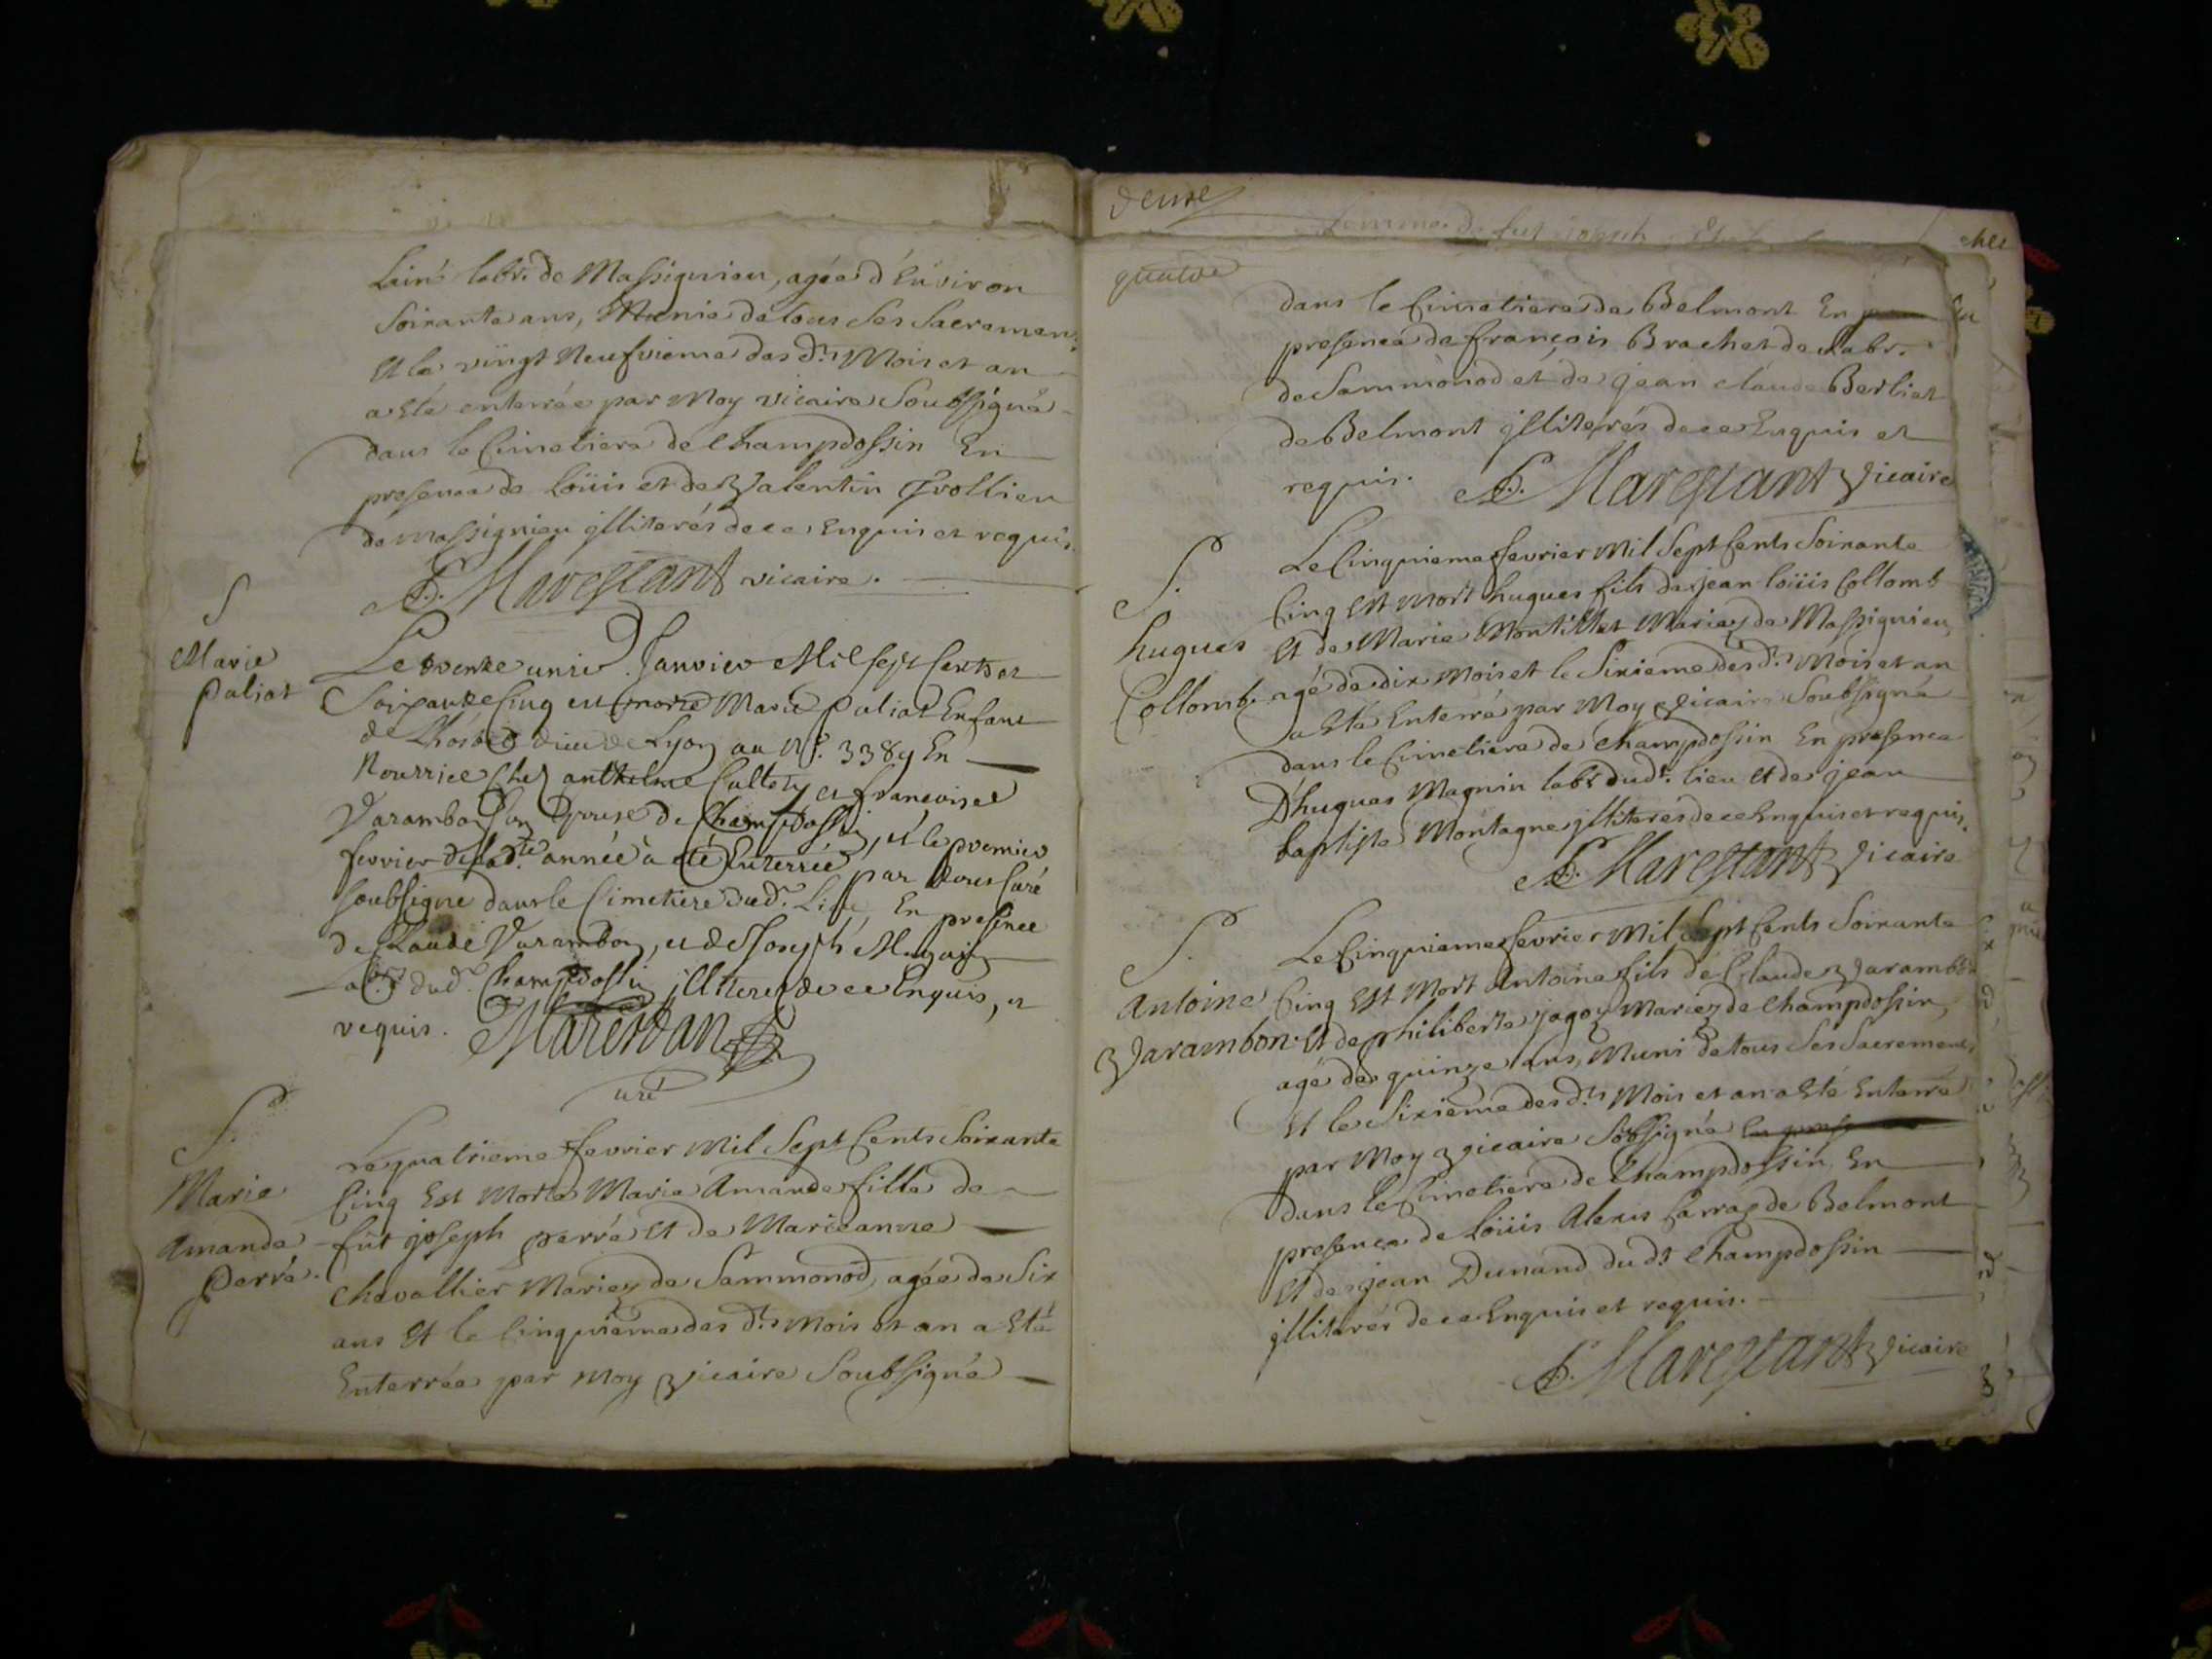 Lainé labr. de Massignieu, agée d'Environ
Soixante ans, Munie de tous Ses Sacremens
Et le vingt Neufvieme des dts Mois et an
a Eté enterrée par Moy vicaire Soubsigné
dans le Cimetiere de Champdossin En
presence de Loüis et de Valentin
de Massignieu illiterés de ce Enquis et requis.
Marestant vicaire.
S
Marie
Paliat
Le trente unie. Janvier Mil sept Cents et
Soixante Cinq est morte Marie Paliat Enfant
de Lhotel dieu de Lyon au N° 3389 En
Nourrice Chez anthelme Cultety et francoise
Varambon son Epouse de Champdossin, et le premier
fevrier de lad.te année à eté Enterrée par Nous Curé
soubsigné dans le Cimetiere dud.t Lieu, En presence
de Claude Varambon, et de Joseph Magnin
labrs dud.t Champdossin illiterez de ce Enquis, et
requis. Marestan
curé
S.
Marie
Amande
Perré.
Le quatrieme fevrier Mil Sept Cents Soixante
Cinq Est Morte Marie Amande fille de
fût joseph perré Et de Marieanne
Chevallier Mariez de Sammonod, agée de Six
ans Et le Cinquieme des dts Mois et an a Eté
Enterrée par Moy vicaire Soubsigné
deuxe
femme de fut joseph
chez
quatre
dans le Cimetiere de Belmont En
presence de françois Brachet de Labr.
de Sammonod et de jean claude Berliat
de Belmont illiterés de ce Enquis et
requis. Marestant Vicaire
S.
hugues
Collomb.
Le Cinquieme fevrier Mil Sept Cents Soixante
Cinq Est Mort hugues fils de jean loüis Collomb
Et de Marie Montillet Mariez de Massignieu,
agé de dix Mois et le Sixieme des dts Mois et an
a Eté Enterré par Moy Vicaire Soubsigné
dans le Cimetiere de Champdossin En presence
D'hugues Magnin labr dudt. lieu Et de jean
baptiste Montagne illiterés de ce Enquis et requis.
Marestant Vicaire
S.
Antoine
Varambon.
Le Cinquieme fevrier Mil Sept Cents Soixante
Cinq Est Mort Antoine fils de Claude Varambon
Et de philiberte jagoz Mariez de Champdossin,
agé de quinze ans, Muni de tous Ses Sacremens
Et le Sixieme des dts Mois et an a Eté Enterré
par Moy vicaire Soubsigné
dans le Cimetiere de Champdossin En
presence de Loüis Alexis Carraz de Belmont
Et de jean Dunand dudt Champdossin
illiterés de ce Enquis et requis.
Marestant Vicaire